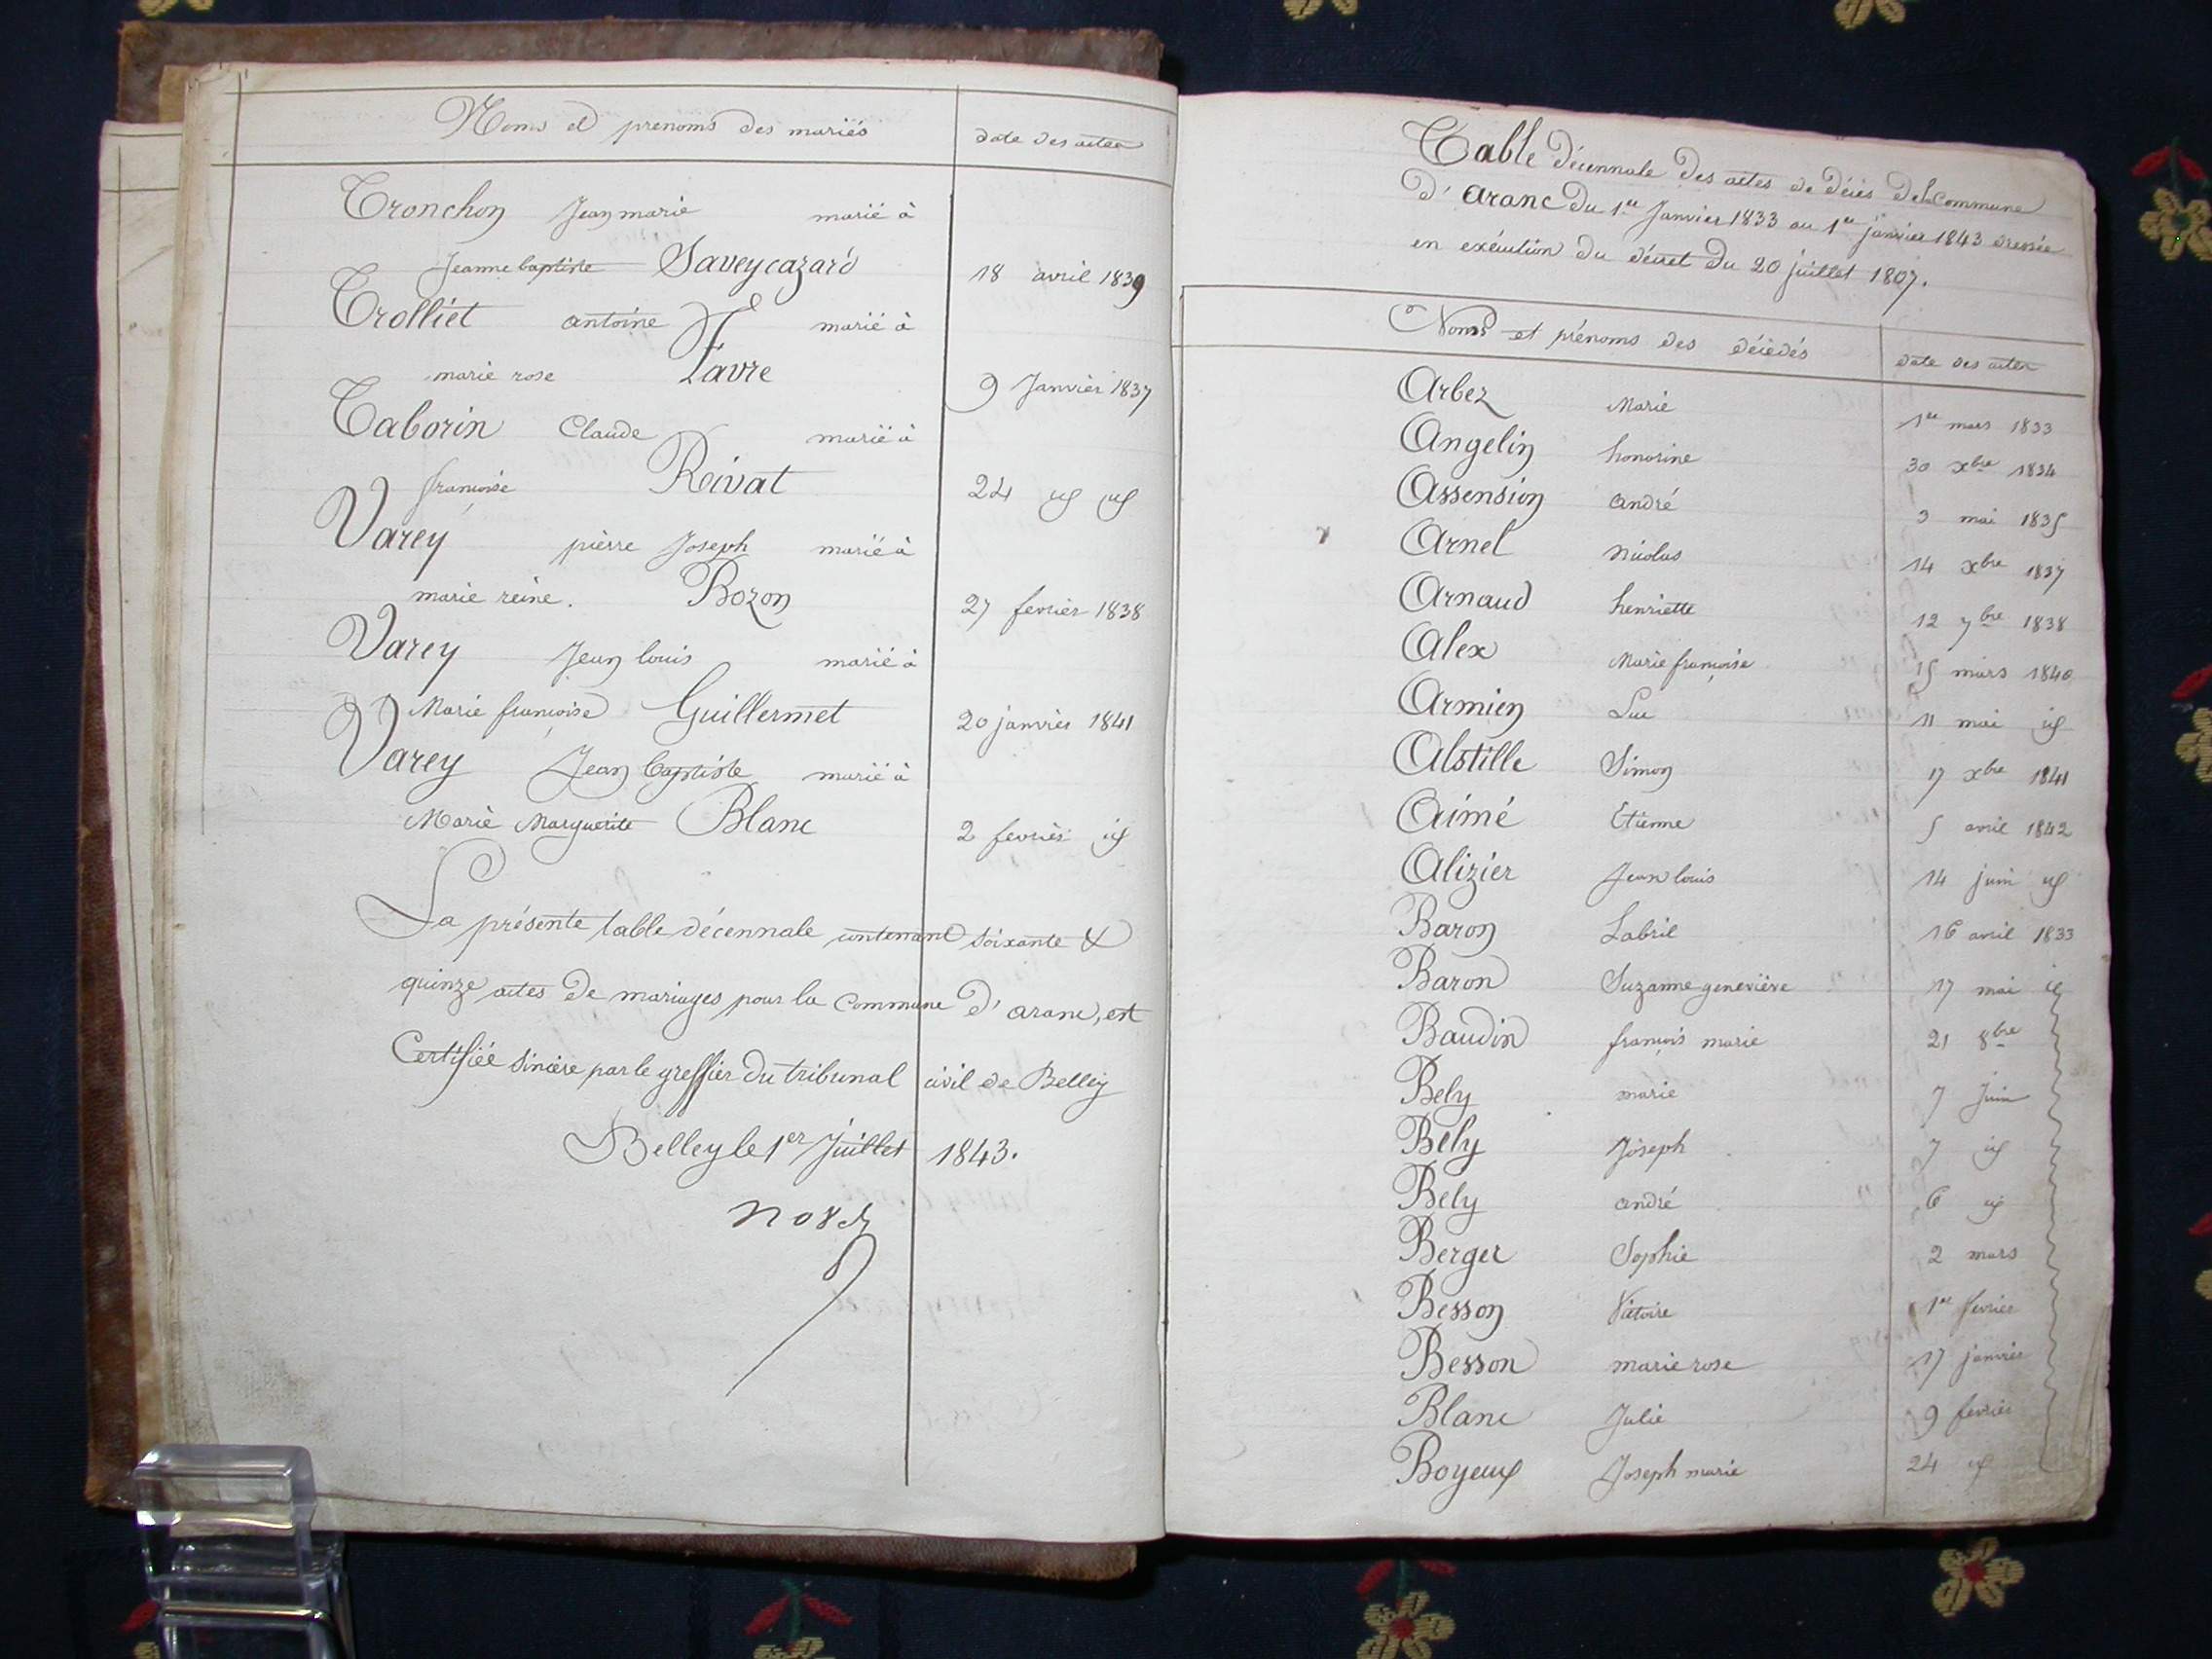 Noms et prenoms des mariés date des actes
Tronchon Jean marie marié à
Jeanne baptiste Saveycazard 18 avril 1839
Trolliet antoine marié à
marie rose Favre 9 Janvier 1837
Taborin Claude marié à
françoise Rivat 24 id id
Varey pierre Joseph marié à
marie reine. Bozon 27 fevrier 1838
Varey Jean louis marié à
Marie françoise Guillermet 20 janvier 1841
Varey Jean baptiste marié à
Marie Marguerite Blanc 2 fevrier id
La présente table décennale contenant soixante &
quinze actes de mariages pour la commune d'aranc, est
Certifiée sincère par le greffier du tribunal civil de Belley
Belley le 1er Juillet 1843.
Table décennale des actes de décès de la commune
d'aranc du 1er Janvier 1833 au 1er janvier 1843 dressée
en exécution du décret du 20 juillet 1807.
Noms et prénoms des décédés date des actes
Arbez Marie 1er mars 1833
Angelin honorine 30 xbre 1834
Assension andré 3 mai 1835
Arnel nicolas 14 xbre 1837
Arnaud henriette 12 7bre 1838
Alex Marie françoise 15 mars 1840
Armien Luc 11 mai id
Alstille Simon 17 xbre 1841
Aimé Etienne 5 avril 1842
Alizier Jean louis 14 juin id
Baron Labril 16 avril 1833
Baron Suzanne geneviève 17 mai id
Baudin françois marie 21 8bre
Bely marie 7 Juin
Bely Joseph 7 id
Bely andré 6 id
Berger Sophie 2 mars
Besson Victoire 1er fevrier
Besson marie rose 17 janvier
Blanc Julie 9 fevrier
Boyeux Joseph marie 24 id